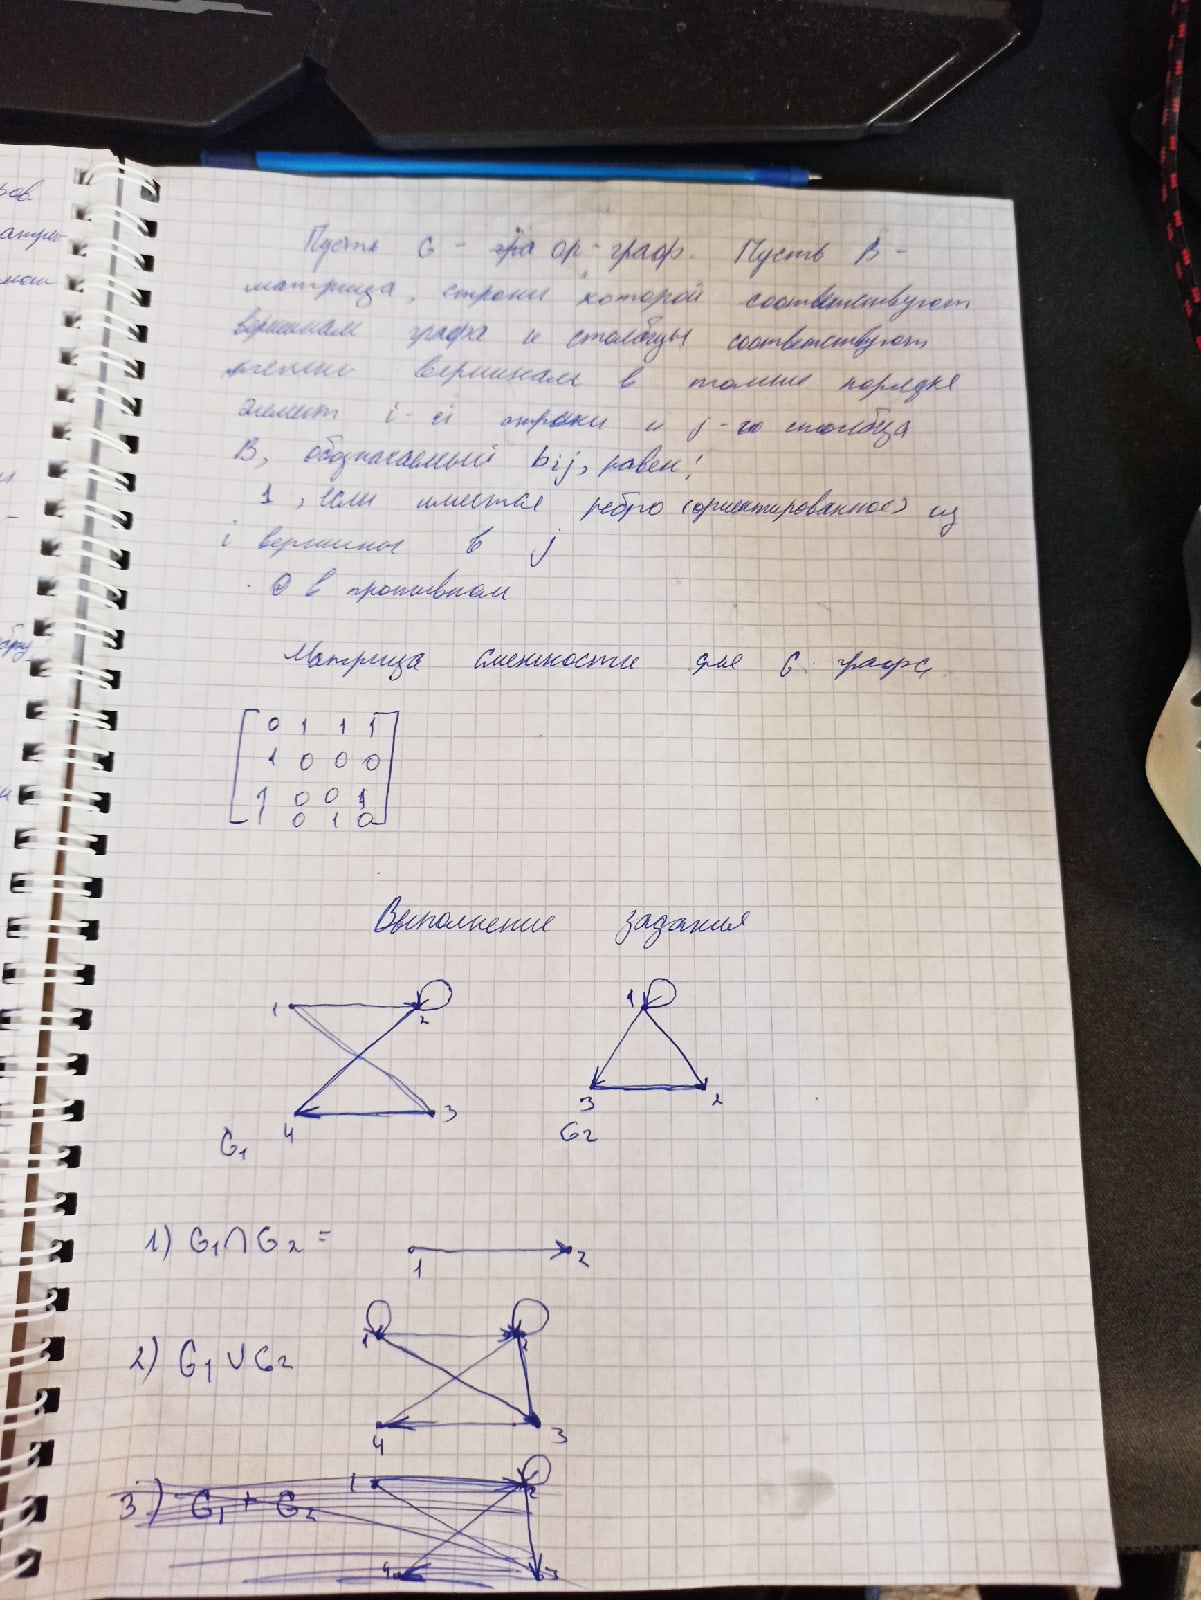 Пусть G - гра ор-граф. Пусть B -
матрица, строки которой соответствуют
вершинам графа и столбцы соответствуют
вершинам в том же порядке
элемент i-й строки и j-го столбца
B, обозначаемый bij, равен:
1, если имеется ребро (ориентированное) из
i вершины в j
0 в противном
Матрица смежности для G графа
0 1 1 1
1 0 0 0
1 0 0 1
1 0 1 0
Выполнение задания
1 2 1
4 3 3 2
G1 G2
1) G1 ∩ G2 =
1 2
2) G1 ∪ G2
1 2
4 3
3) G1 + G2
1 2
4 3